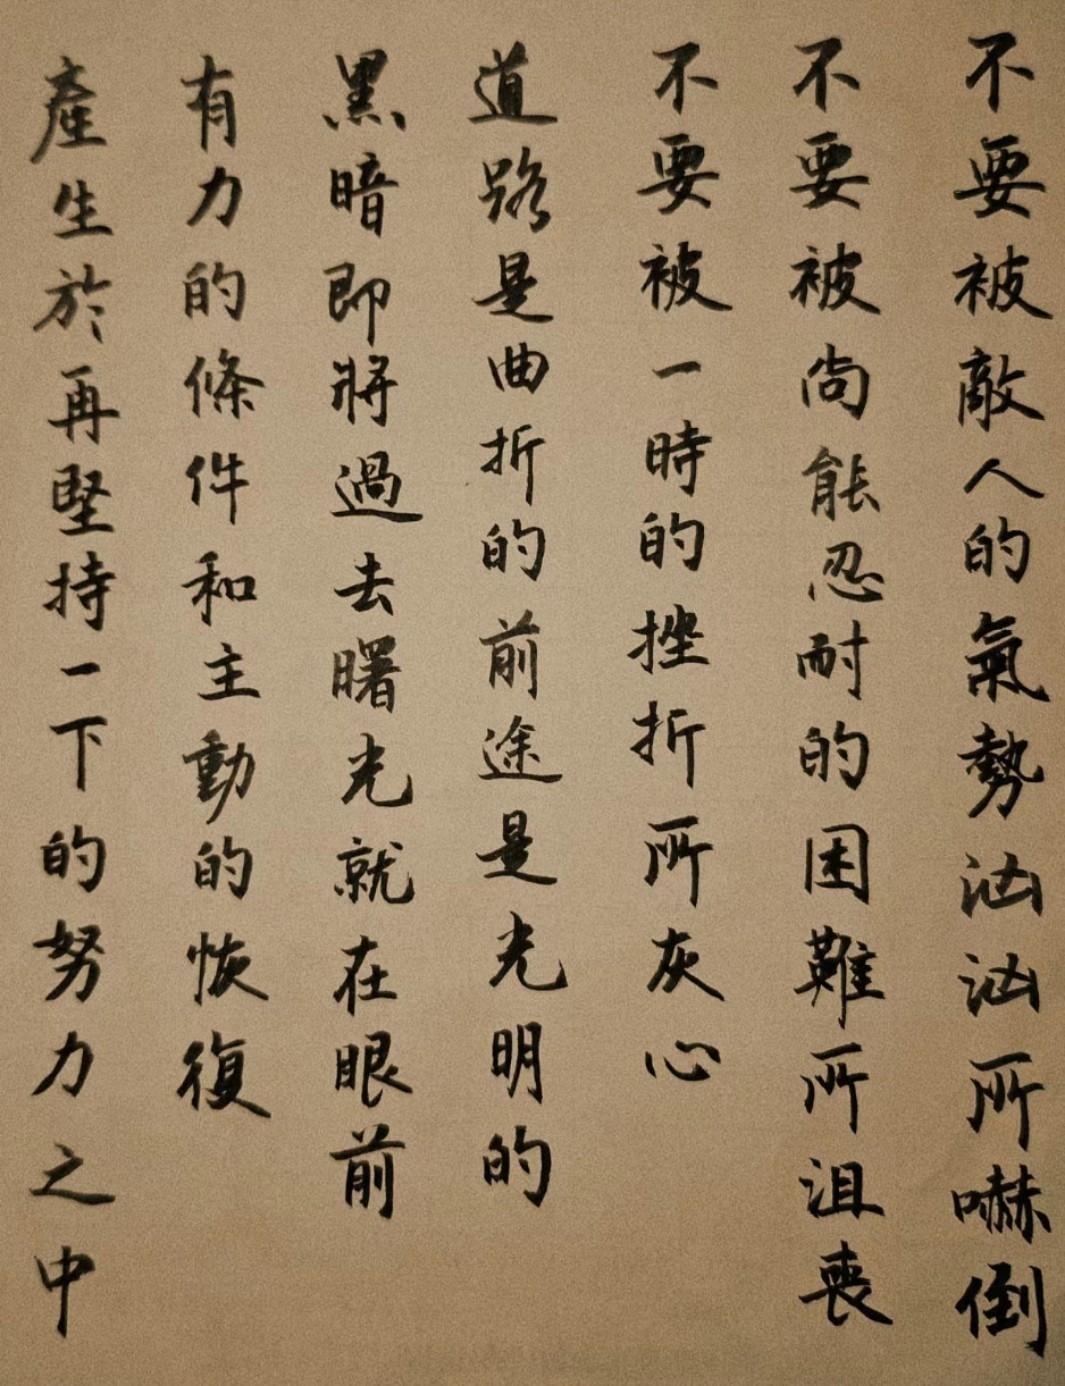 不要被敵人的氣勢汹汹所嚇倒
不要被尚能忍耐的困難所沮喪
不要被一時的挫折所灰心
道路是曲折的前途是光明的
黑暗即將過去曙光就在眼前
有力的條件和主動的恢復
產生於再堅持一下的努力之中